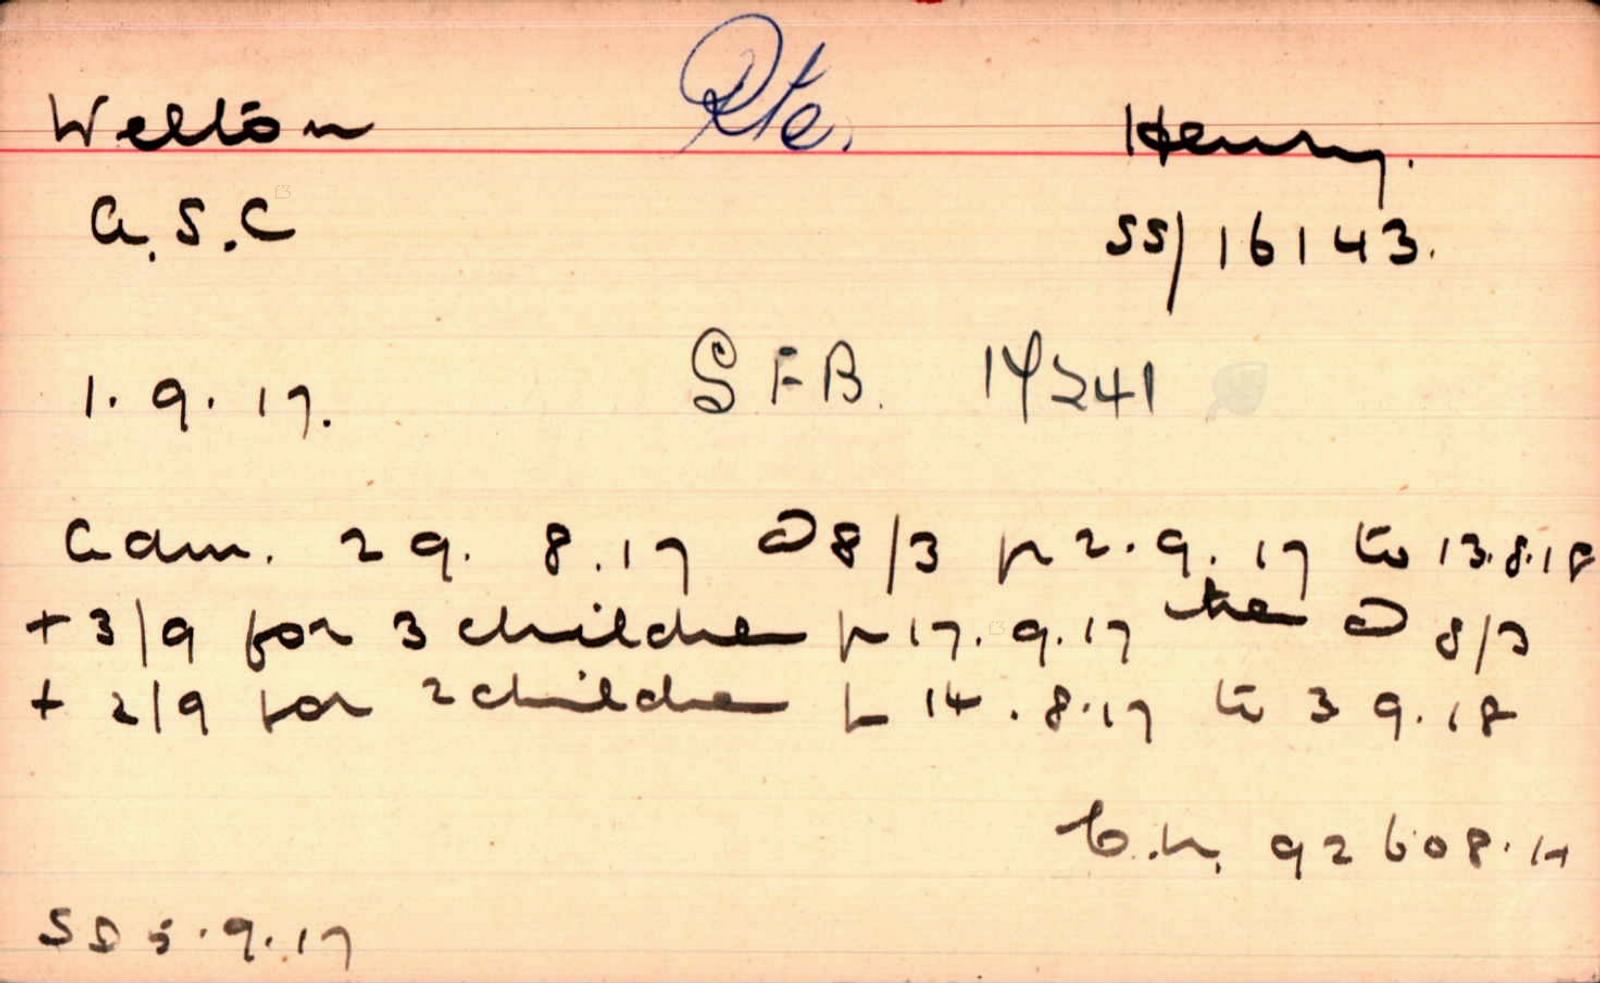 Welton Pte. Henry.
A.S.C SS/16143.
1.9.17. SFB. 14241
Adm. 29. 8.17 @ 8/3 fr 2.9.17 to 13.8.18
+ 3/9 for 3 children fr 17.9.17 then @ 8/3
+ 2/9 for 2 children fr 14.8.17 to 3 9.18
C.N. 92608.H
SS 5.9.17